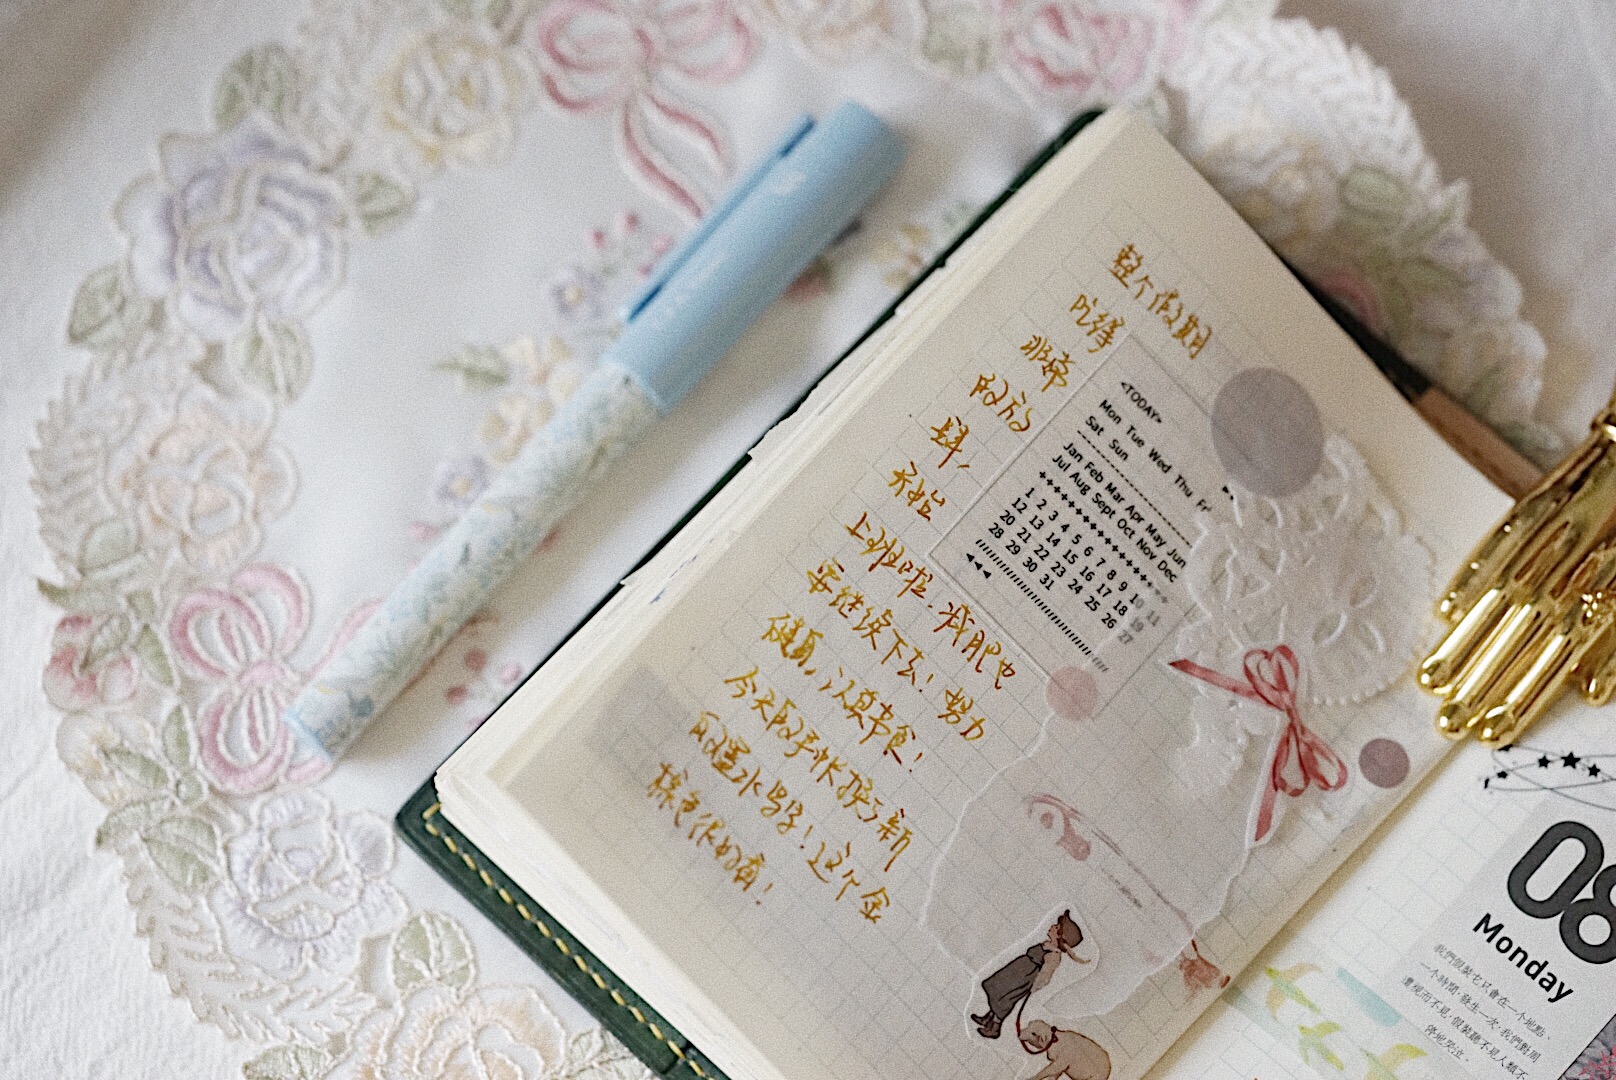 整个假期
吃得
非常
的放
肆，
开始
上班啦. 减肥也
要继续下去! 努力
健身, 认真节食!
今天的手帐换了新
的墨水写字! 这个金
棕色很好看!
<TODAY>
Mon Tue Wed Thu Fri
Sat Sun
Jan Feb Mar Apr May Jun
Jul Aug Sept Oct Nov Dec
1 2 3 4 5 6 7 8 9 10 11
12 13 14 15 16 17 18 19
20 21 22 23 24 25 26 27
28 29 30 31
08
Monday
我們假裝它只會在一個地點、
一個時間, 發生一次, 我們對周
遭視而不見, 假裝聽不見人類不
停地哭泣。